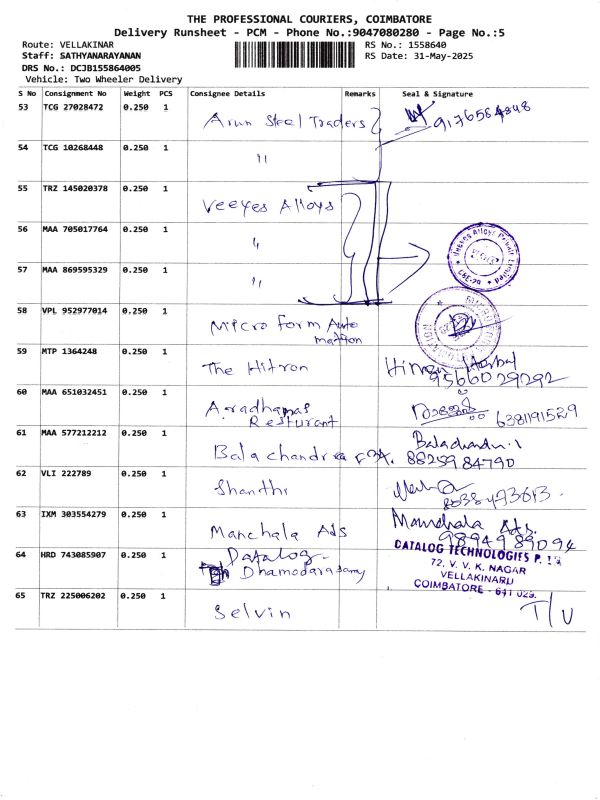 THE PROFESSIONAL COURIERS, COIMBATORE
Delivery Runsheet - PCM - Phone No.:9047080280 - Page No.:5
Route: VELLAKINAR RS No.: 1558640
Staff: SATHYANARAYANAN RS Date: 31-May-2025
DRS No.: DCJB155864005
Vehicle: Two Wheeler Delivery
S No Consignment No Weight PCS Consignee Details Remarks Seal & Signature
53 TCG 27028472 0.250 1 Arun Steel Traders
54 TCG 10268448 0.250 1 "
55 TRZ 145020378 0.250 1 Veeyes Alloys
56 MAA 705017764 0.250 1 "
57 MAA 869595329 0.250 1 "
58 VPL 952977014 0.250 1 Micro form Auto
mattion
59 MTP 1364248 0.250 1 The Hitron
9566029292
60 MAA 651032451 0.250 1 Aradhanas
Resturant 6381191529
61 MAA 577212212 0.250 1 Bala chandra
88259 84790
62 VLI 222789 0.250 1 Shanthi
63 IXM 303554279 0.250 1 Manchala Ads Manchala Ads.
98949 89094
64 HRD 743085907 0.250 1 Datalog
Dhamodarasamy
DATALOG TECHNOLOGIES P.
72, V. V. K. NAGAR
VELLAKINARU
COIMBATORE - 641 029.
65 TRZ 225006202 0.250 1 Selvin T/U